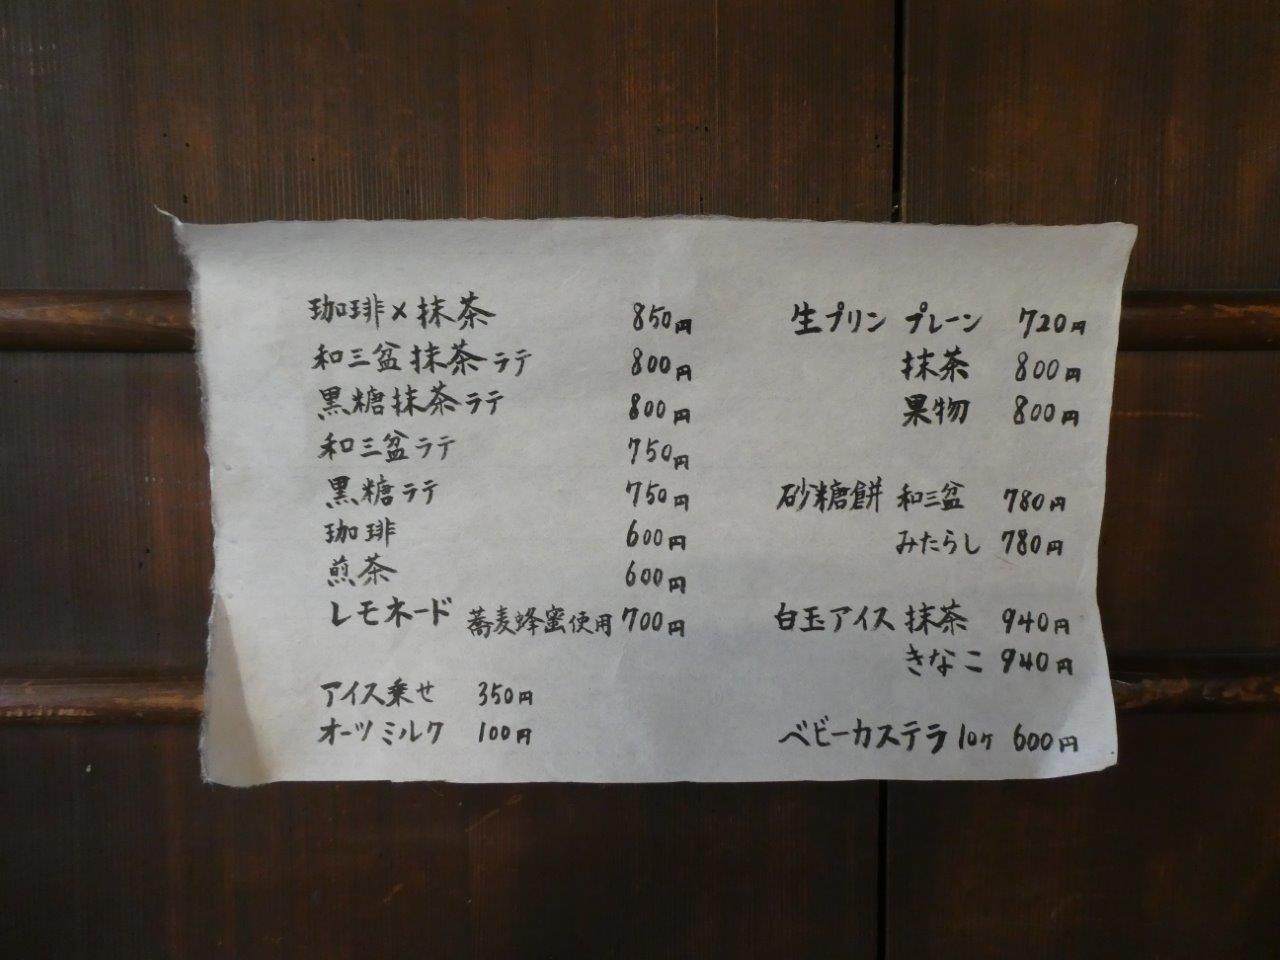 珈琲×抹茶 850円
和三盆抹茶ラテ 800円
黒糖抹茶ラテ 800円
和三盆ラテ 750円
黒糖ラテ 750円
珈琲 600円
煎茶 600円
レモネード 蕎麦蜂蜜使用 700円
アイス乗せ 350円
オーツミルク 100円
生プリン プレーン 720円
抹茶 800円
果物 800円
砂糖餅 和三盆 780円
みたらし 780円
白玉アイス 抹茶 940円
きなこ 940円
ベビーカステラ 10ヶ 600円